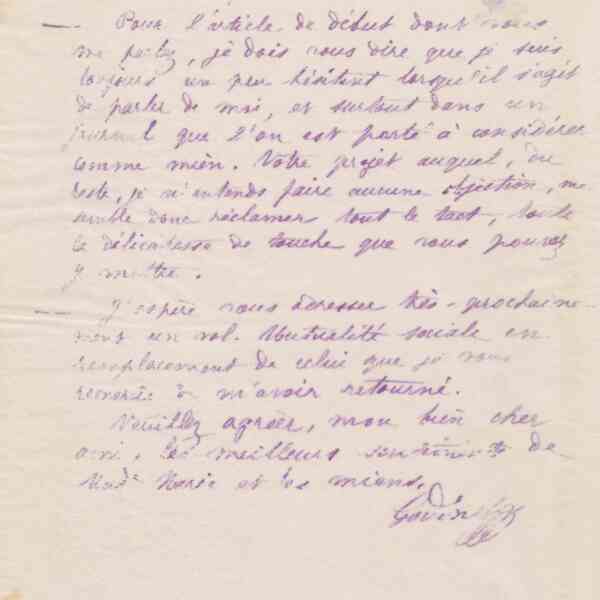 — Pour l'article de début dont vous
me parlez, je dois vous dire que je suis
toujours un peu hésitant lorsqu'il s'agit
de parler de moi, et surtout dans un
journal que l'on est porté à considérer
comme mien. Votre projet auquel, du
reste, je n'entends faire aucune objection, me
semble donc réclamer tout le tact, toute
la délicatesse de touche que vous pouvez
y mettre.
— J'espère vous adresser très-prochaine-
ment un vol. Mutualité sociale en
remplacement de celui que je vous
remercie de m'avoir retourné.
Veuillez agréer, mon bien cher
ami, les meilleurs sentiments de
Mad. Marie et les miens.
Godin